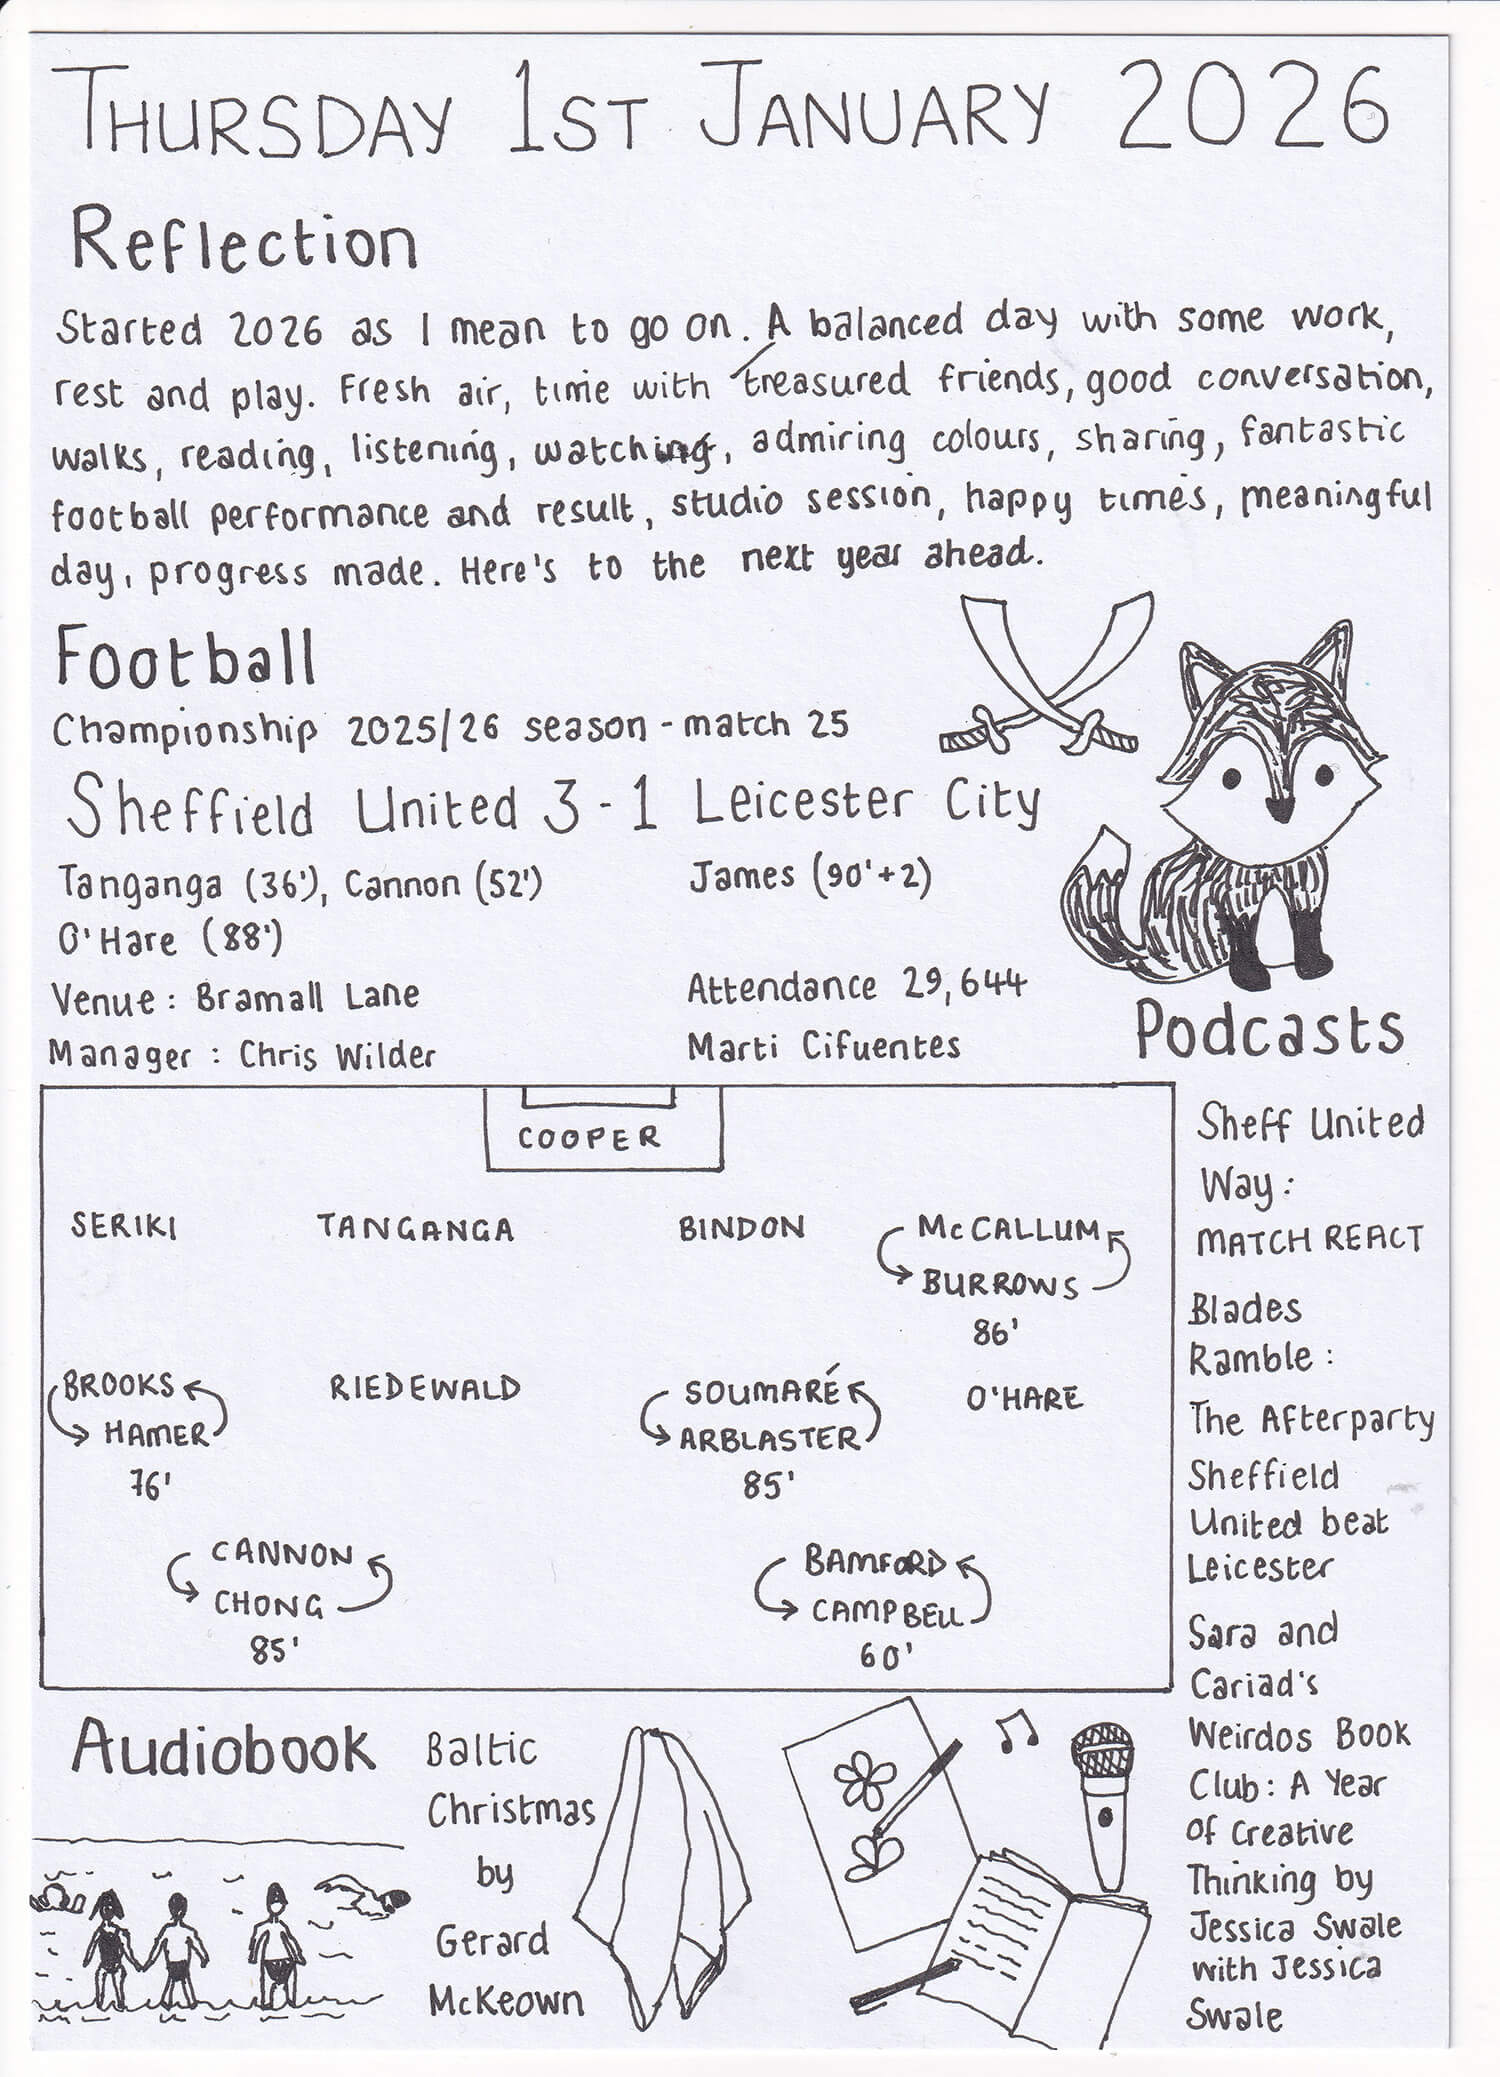 THURSDAY 1ST JANUARY 2026
Reflection
Started 2026 as I mean to go on. A balanced day with some work,
rest and play. Fresh air, time with treasured friends, good conversation,
walks, reading, listening, watching, admiring colours, sharing, fantastic
football performance and result, studio session, happy times, meaningful
day, progress made. Here's to the next year ahead.
Football
Championship 2025/26 season - match 25
Sheffield United 3 - 1 Leicester City
Tanganga (36'), Cannon (52')
O'Hare (88')
James (90'+2)
Venue: Bramall Lane
Attendance 29,644
Manager: Chris Wilder
Marti Cifuentes
COOPER
SERIKI TANGANGA BINDON McCALLUM
BURROWS
86'
BROOKS RIEDEWALD SOUMARÉ O'HARE
HAMER ARBLASTER
76' 85'
CANNON BAMFORD
CHONG CAMPBELL
85' 60'
Podcasts
Sheff United
Way:
MATCH REACT
Blades
Ramble:
The Afterparty
Sheffield
United beat
Leicester
Sara and
Cariad's
Weirdos Book
Club: A Year
of Creative
Thinking by
Jessica Swale
with Jessica
Swale
Audiobook
Baltic
Christmas
by
Gerard
McKeown